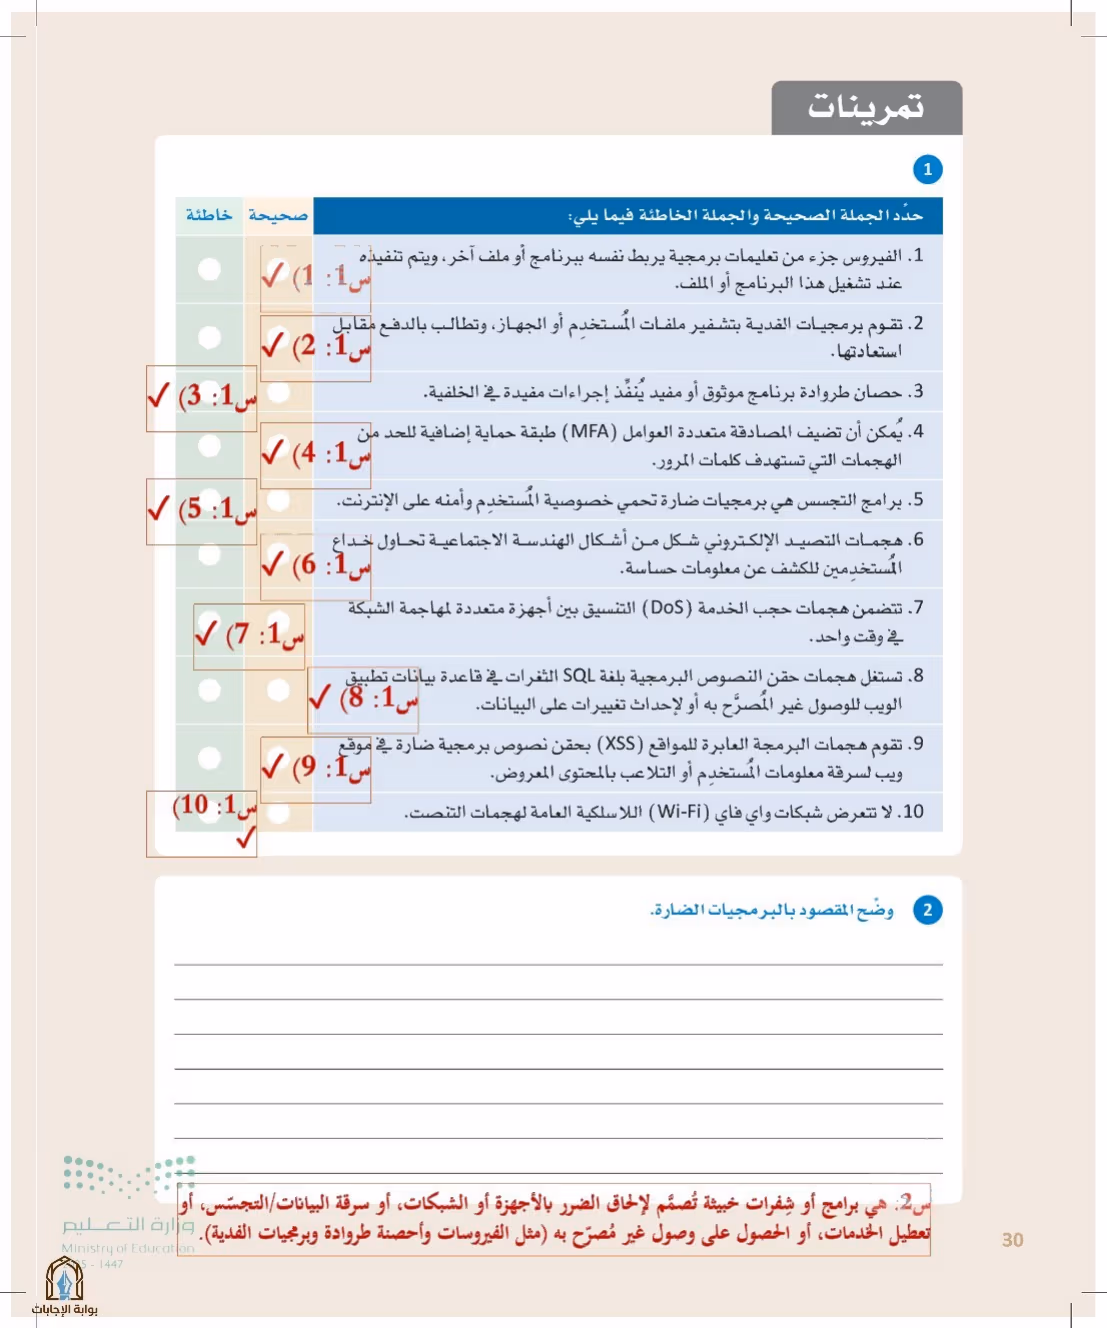 تمرينات
1
حدِّد الجملة الصحيحة والجملة الخاطئة فيما يلي: صحيحة خاطئة
1. الفيروس جزء من تعليمات برمجية يربط نفسه ببرنامج أو ملف آخر، ويتم تنفيذه
عند تشغيل هذا البرنامج أو الملف.
س1: 1) ✓
2. تقوم برمجيات الفدية بتشفير ملفات المُستخدِم أو الجهاز، وتطالب بالدفع مقابل
استعادتها.
س1: 2) ✓
3. حصان طروادة برنامج موثوق أو مفيد يُنفِّذ إجراءات مفيدة في الخلفية.
س1: 3) ✓
4. يُمكن أن تضيف المصادقة متعددة العوامل (MFA) طبقة حماية إضافية للحد من
الهجمات التي تستهدف كلمات المرور.
س1: 4) ✓
5. برامج التجسس هي برمجيات ضارة تحمي خصوصية المُستخدِم وأمنه على الإنترنت.
س1: 5) ✓
6. هجمات التصيد الإلكتروني شكل من أشكال الهندسة الاجتماعية تحاول خداع
المُستخدِمين للكشف عن معلومات حساسة.
س1: 6) ✓
7. تتضمن هجمات حجب الخدمة (DoS) التنسيق بين أجهزة متعددة لمهاجمة الشبكة
في وقت واحد.
س1: 7) ✓
8. تستغل هجمات حقن النصوص البرمجية بلغة SQL الثغرات في قاعدة بيانات تطبيق
الويب للوصول غير المُصرَّح به أو لإحداث تغييرات على البيانات.
س1: 8) ✓
9. تقوم هجمات البرمجة العابرة للمواقع (XSS) بحقن نصوص برمجية ضارة في موقع
ويب لسرقة معلومات المُستخدِم أو التلاعب بالمحتوى المعروض.
س1: 9) ✓
10. لا تتعرض شبكات واي فاي (Wi-Fi) اللاسلكية العامة لهجمات التنصت.
س1: 10)
✓
2 وضِّح المقصود بالبرمجيات الضارة.
س2: هي برامج أو شِفرات خبيثة تُصمَّم لإلحاق الضرر بالأجهزة أو الشبكات، أو سرقة البيانات/التجسّس، أو
تعطيل الخدمات، أو الحصول على وصول غير مُصرّح به (مثل الفيروسات وأحصنة طروادة وبرمجيات الفدية).
وزارة التعليم
Ministry of Education
- 1447
30
بوابة الإجابات